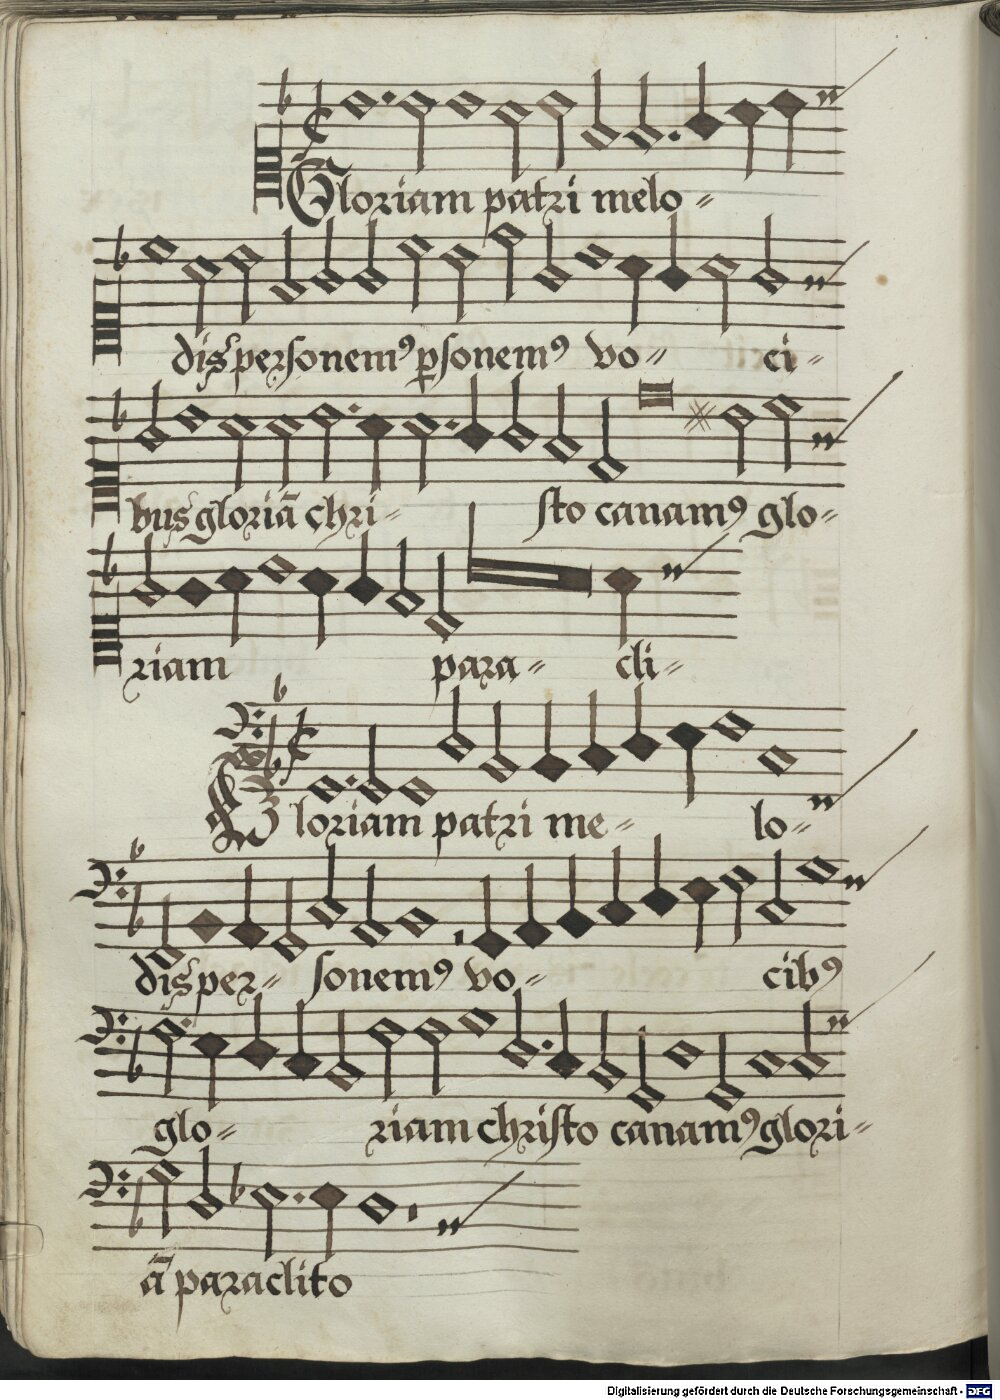 Gloriam patri melo-
dis personem⁹ p̱sonem⁹ vo- ci-
bus gloriā chri- sto canam⁹ glo-
riam para- cli-
Gloriam patri me- lo-
dis per- sonem⁹ vo- cib⁹
glo- riam christo canam⁹ glori-
ā paraclito
Digitalisierung gefördert durch die Deutsche Forschungsgemeinschaft - DFG